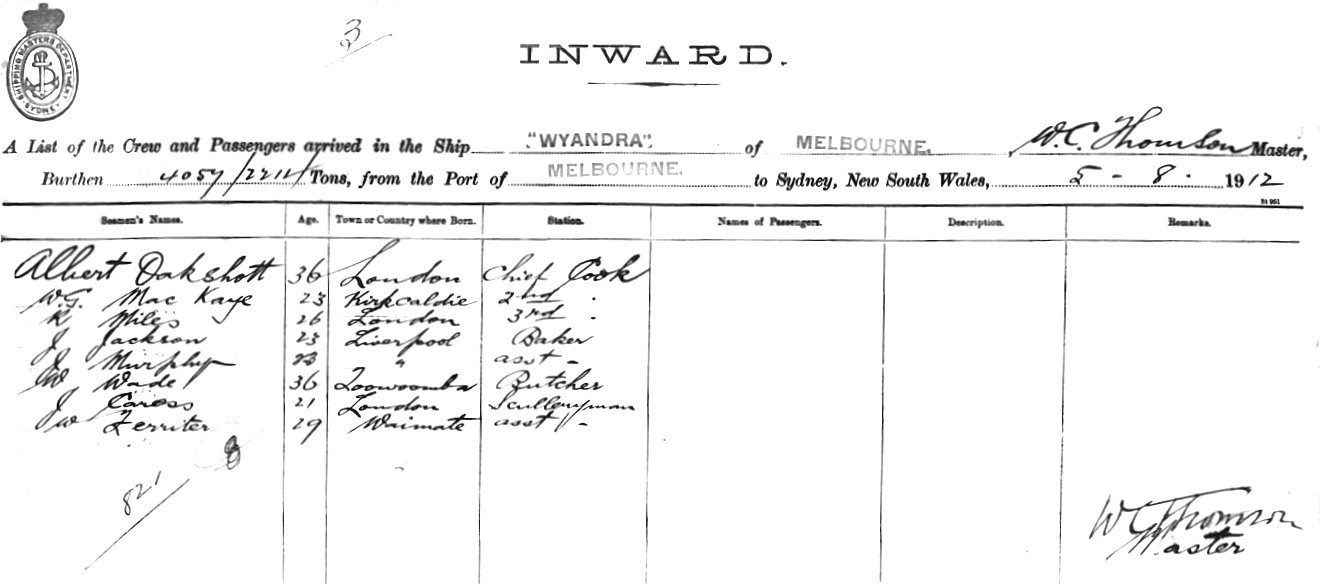 3
SHIPPING MASTERS DEPARTMENT
SYDNEY
INWARD.
A List of the Crew and Passengers arrived in the Ship "WYANDRA". of MELBOURNE. W.C. Thomson Master,
Burthen 4057/2211 Tons, from the Port of MELBOURNE. to Sydney, New South Wales, 5 - 8 . 1912
Seamen's Names. Age. Town or Country where Born. Station. Names of Passengers. Description. Remarks.
Albert Oakshott 36 London Chief Cook
W.G. Mac Kaye 23 Kirkcaldie 2nd "
R Miles 26 London 3rd "
J Jackson 23 Liverpool Baker
J Murphy 23 " asst -
W Wade 36 Toowoomba Butcher
J Caress 21 London Sculleryman
JW Ferriter 29 Waimate asst -
8
821
W C Thomson
Master